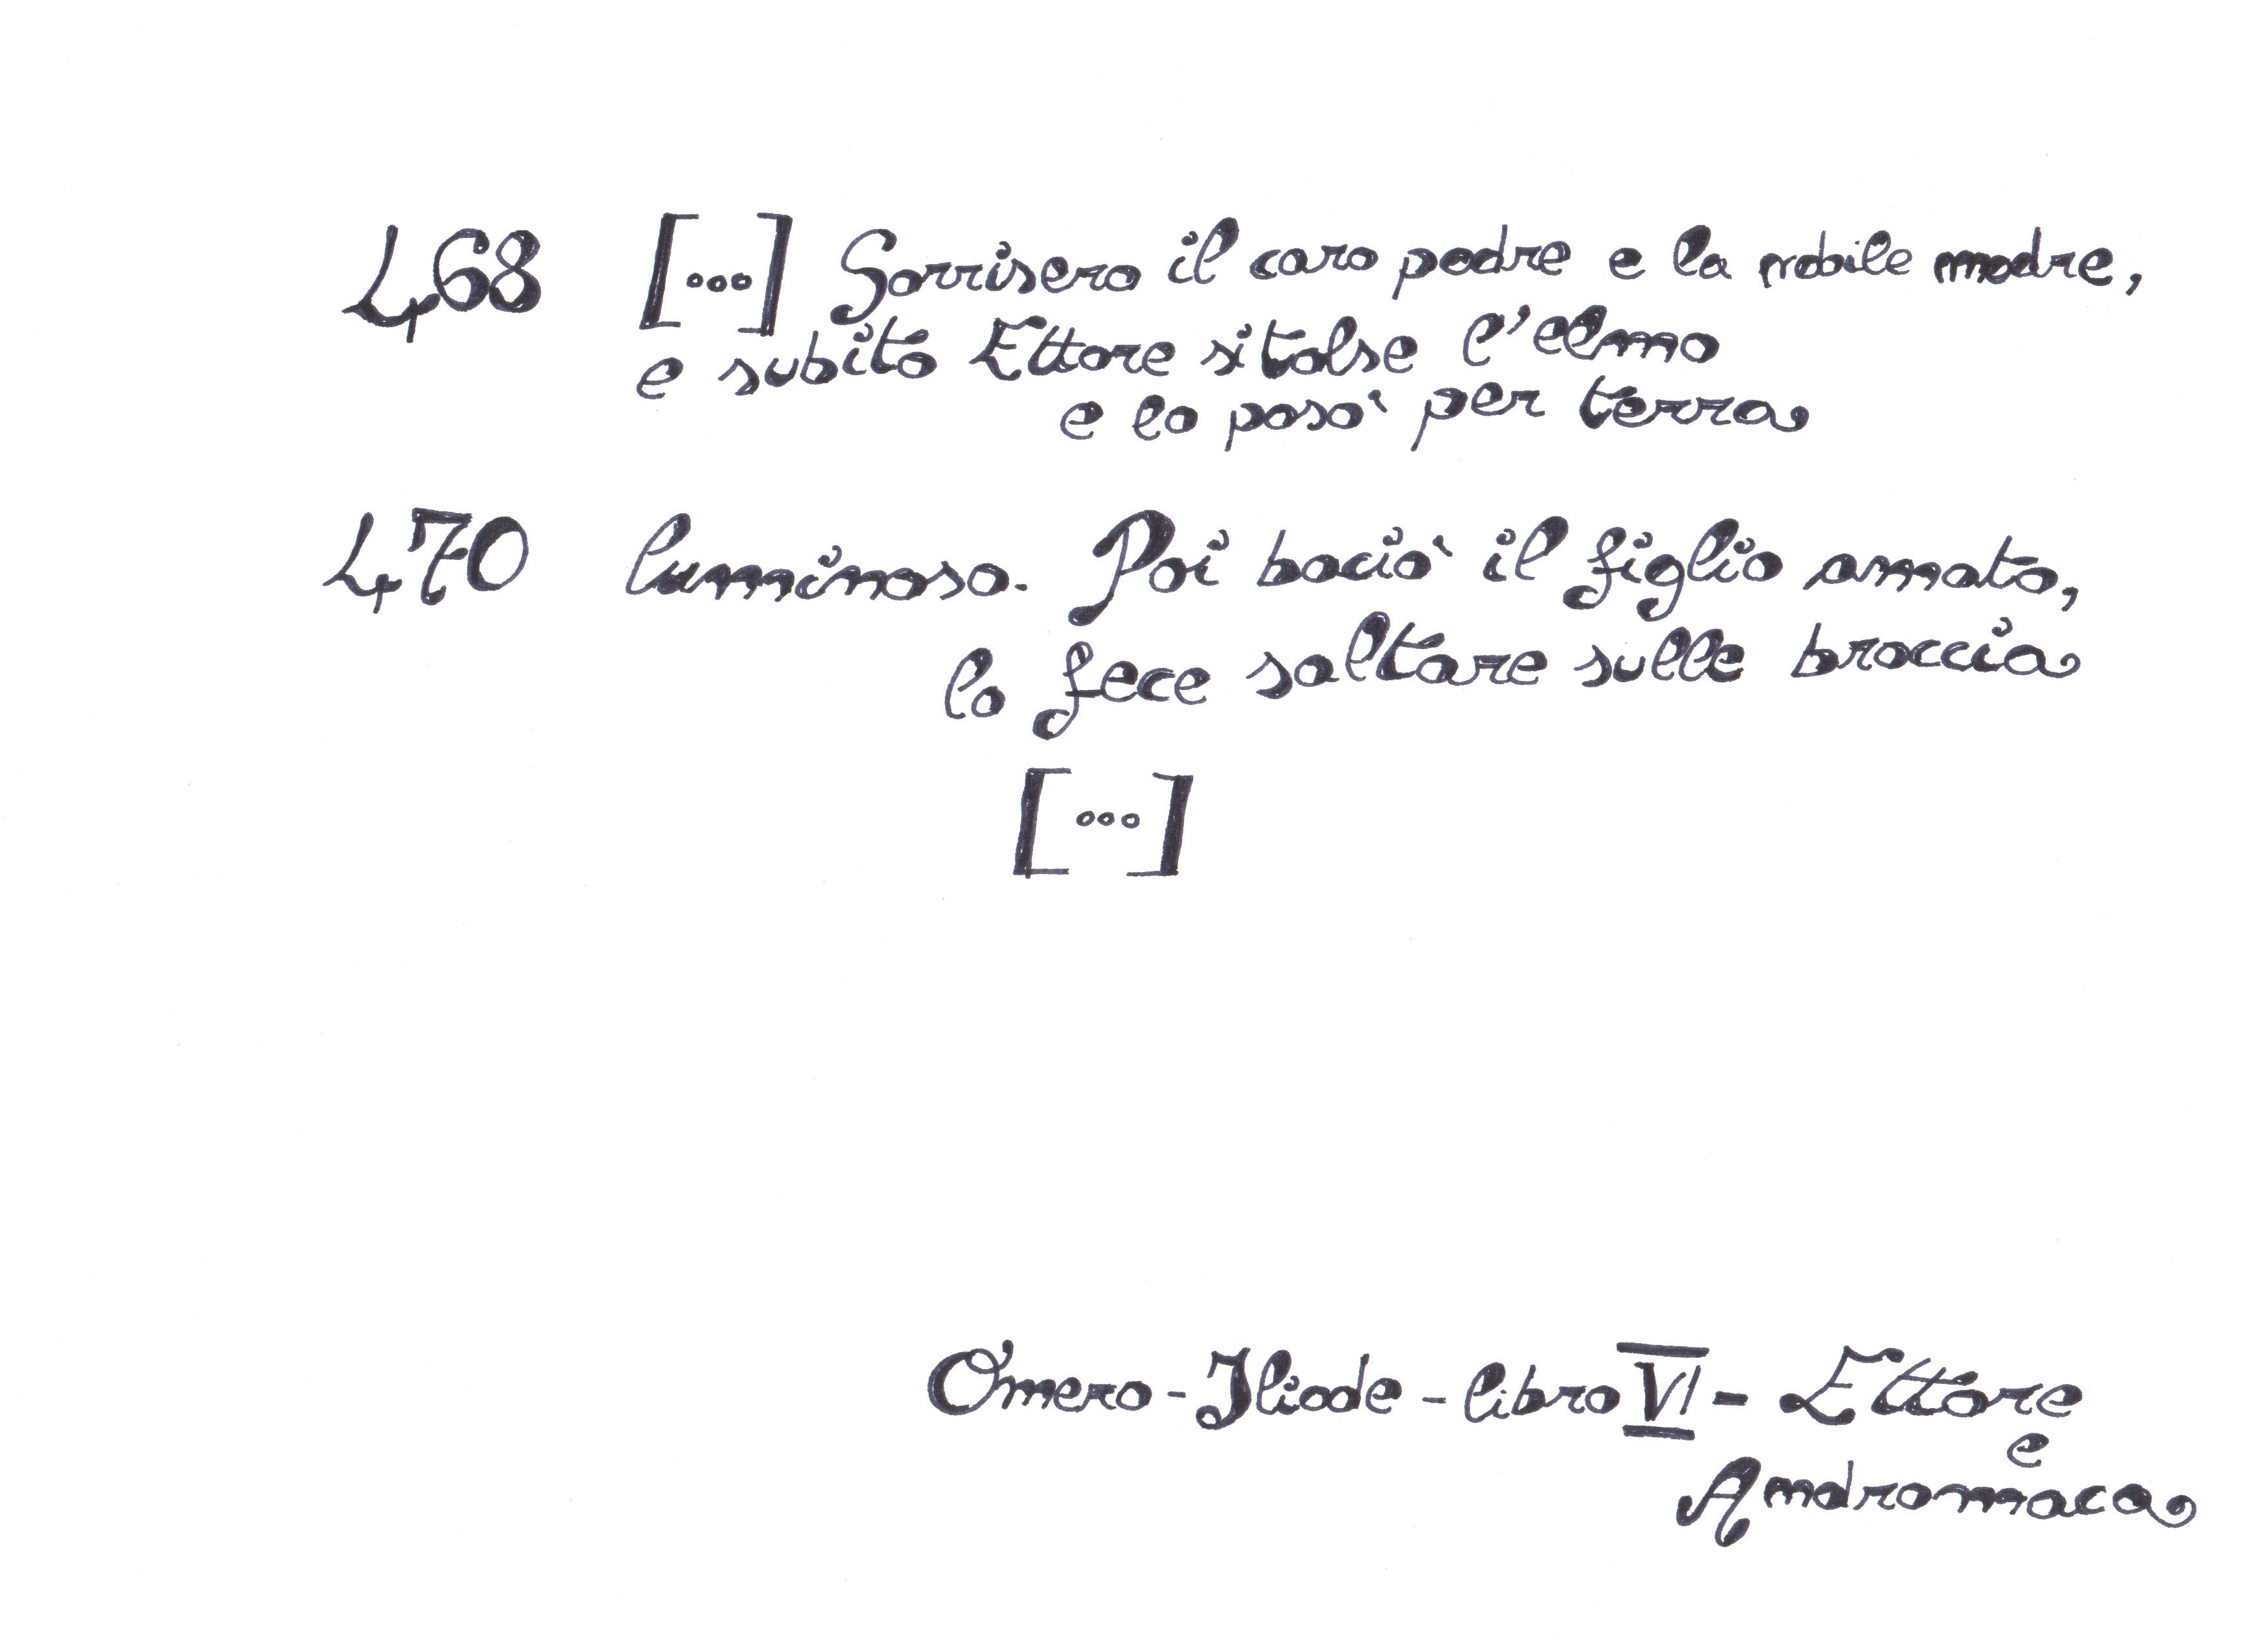 468 [...] Sorrisero il caro padre e la nobile madre,
e subito Ettore si tolse l'elmo
e lo posò per terra
470 luminoso. Poi baciò il figlio amato,
lo fece saltare sulle braccia
[...]
Omero - Iliade - libro VI - Ettore
e
Andromaca